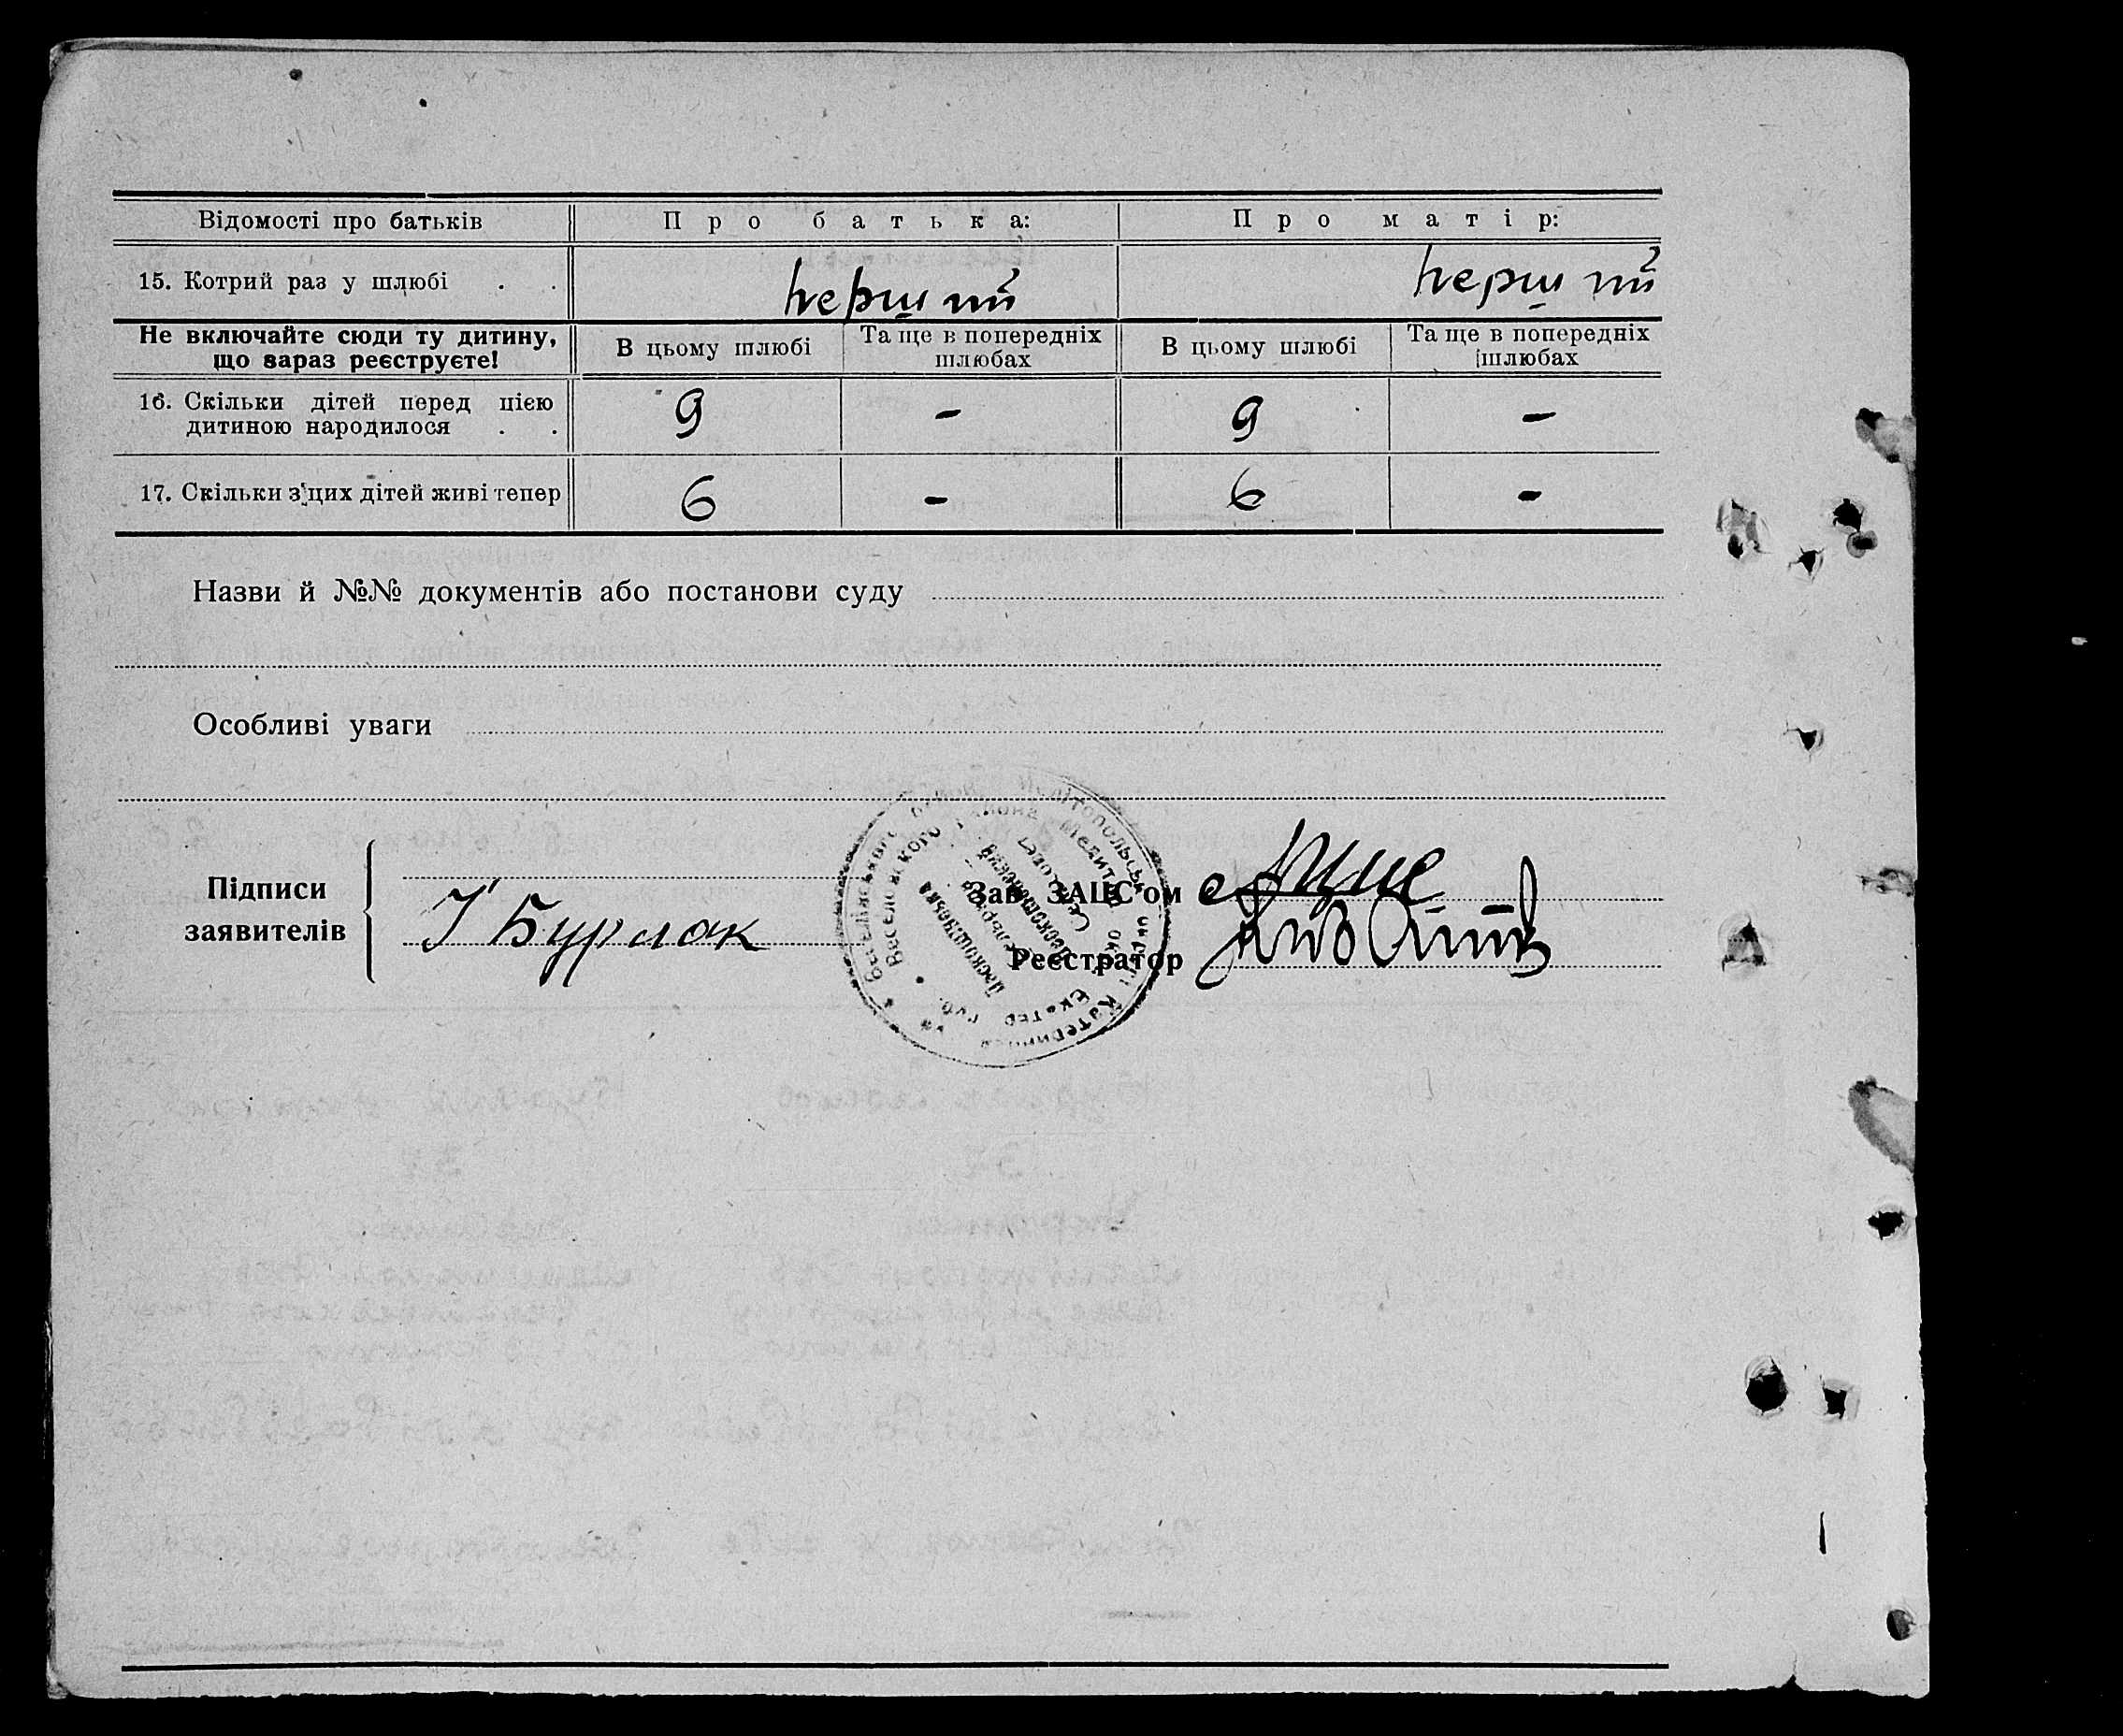 Відомості про батьків
Про батька:
Про матір:
15. Котрий раз у шлюбі . .
перший
перший
Не включайте сюди ту дитину,
що зараз реєструєте!
В цьому шлюбі
Та ще в попередніх
шлюбах
В цьому шлюбі
Та ще в попередніх
шлюбах
16. Скільки дітей перед цією
дитиною народилося . .
9
-
9
-
17. Скільки з цих дітей живі тепер
6
-
6
-
Назви й №№ документів або постанови суду
Особливі уваги
Підписи
заявителів
І Бурлак
Зав. ЗАЦС'ом
Реєстратор